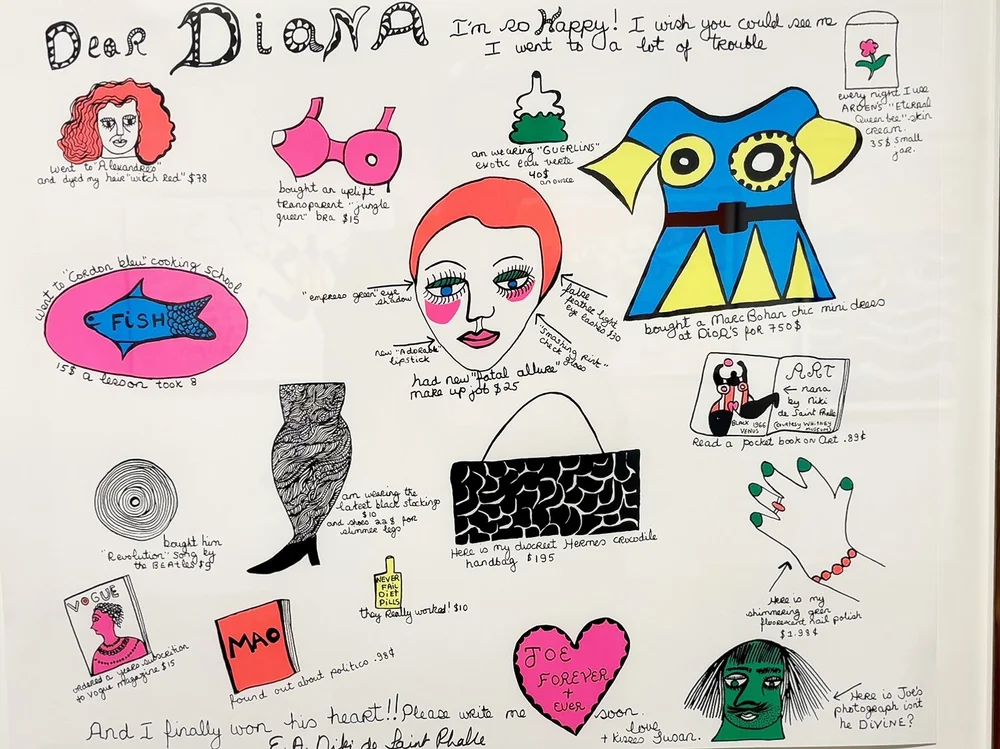 Dear DiaNA
I'm so Happy! I wish you could see me
I went to a lot of trouble
every night I use
ARDEN'S "Eternal
Queen bee" skin
cream.
35$ small
jar.
went to "Alexandres"
and dyed my hair "witch red" $78
bought an uplift
transparent "jungle
queen" bra $15
am wearing "GUERLINS"
exotic eau verte
40$
an ounce
went to "Cordon bleu" cooking school
FiSH
15$ a lesson took 8
"empress green" eye
shadow
false
feather light
eye lashes $30
new "Adorable"
lipstick
"Smashing pink"
cheek gloss
had new "fatal allure"
make up job $25
bought a Marc Bohan chic mini dress
at DioR's for 750$
ART
← nana
by Niki
de Saint Phalle
BLACK 1966
VENUS
(courtesy WHITNEY
MUSEUM)
Read a pocket book on Art .89¢
am wearing the
latest black stockings
$10
and shoes 22$ for
slimmer legs
Here is my discreet Hermes crocodile
handbag $195
bought him
"Revolution" song by
the BEAtles $9
NEVER
FAIL
DiET
PiLLS
they Really worked! $10
Here is my
shimmering green
fluorescent nail polish
$1.98¢
VOGUE
ordered a years subscrition
to Vogue magazine $15
MAO
found out about politics .98¢
JOE
FOREVER
+
EVER
← Here is Joe's
photograph isn't
he DiViNE?
And I finally won his heart!! Please write me soon.
love
+ Kisses Susan.
E.A. Niki de Saint Phalle